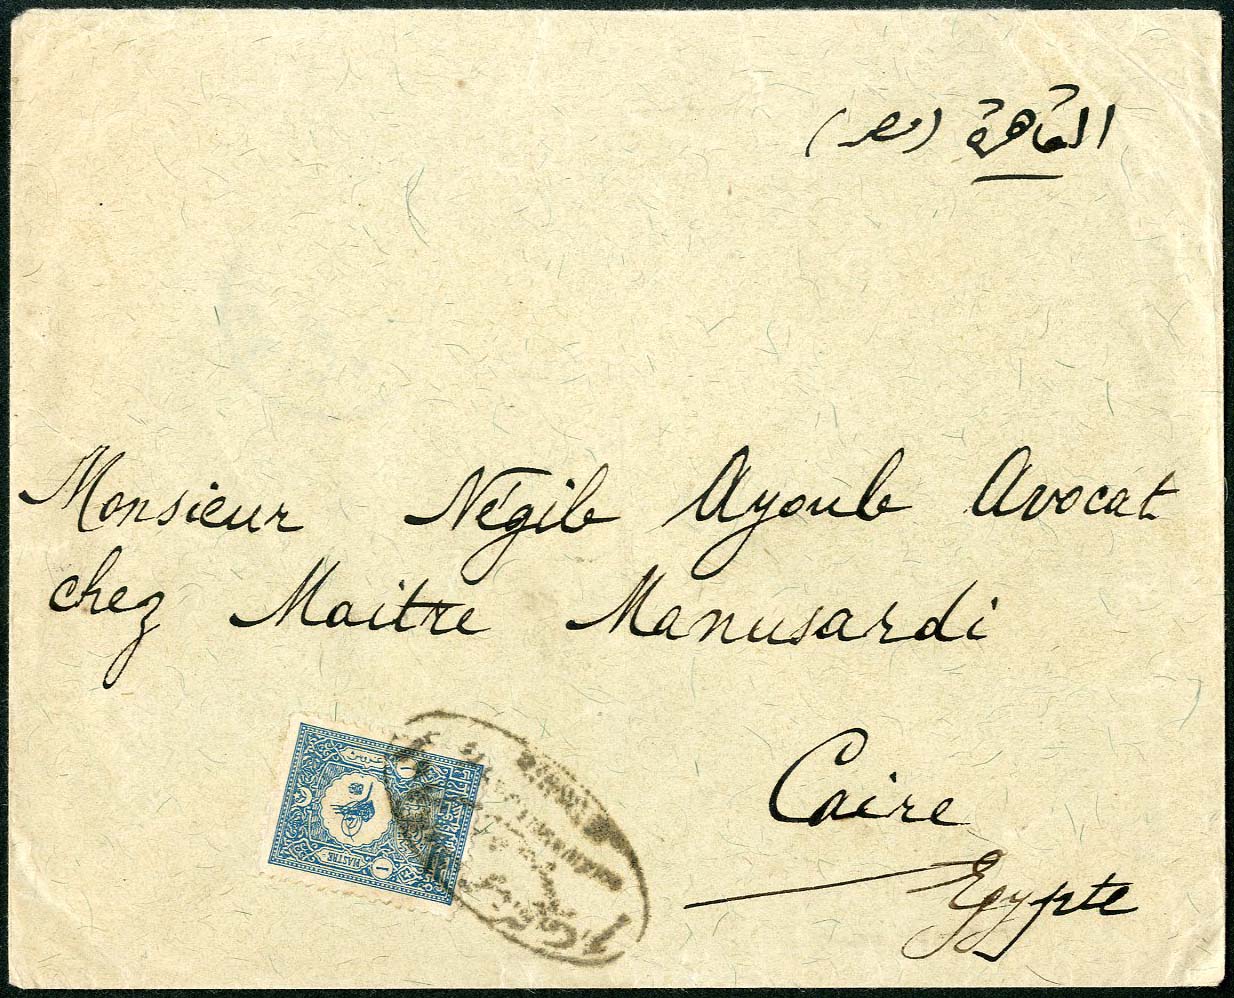 القاهرة (مصر)
Monsieur Négib Ayoub Avocat
chez Maitre Manusardi
Caire
Egypte
1 غروش 1
1 PIASTRE 1